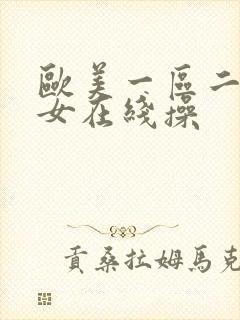 歐美一區二
女在綫操
貢桑拉姆馬克